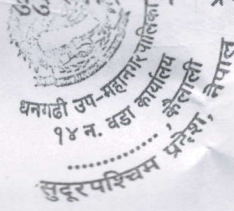 धनगढी उप-महानगरपालिका
१४ न. वडा कार्यालय
.............. कैलाली
सुदूरपश्चिम प्रदेश, नेपाल